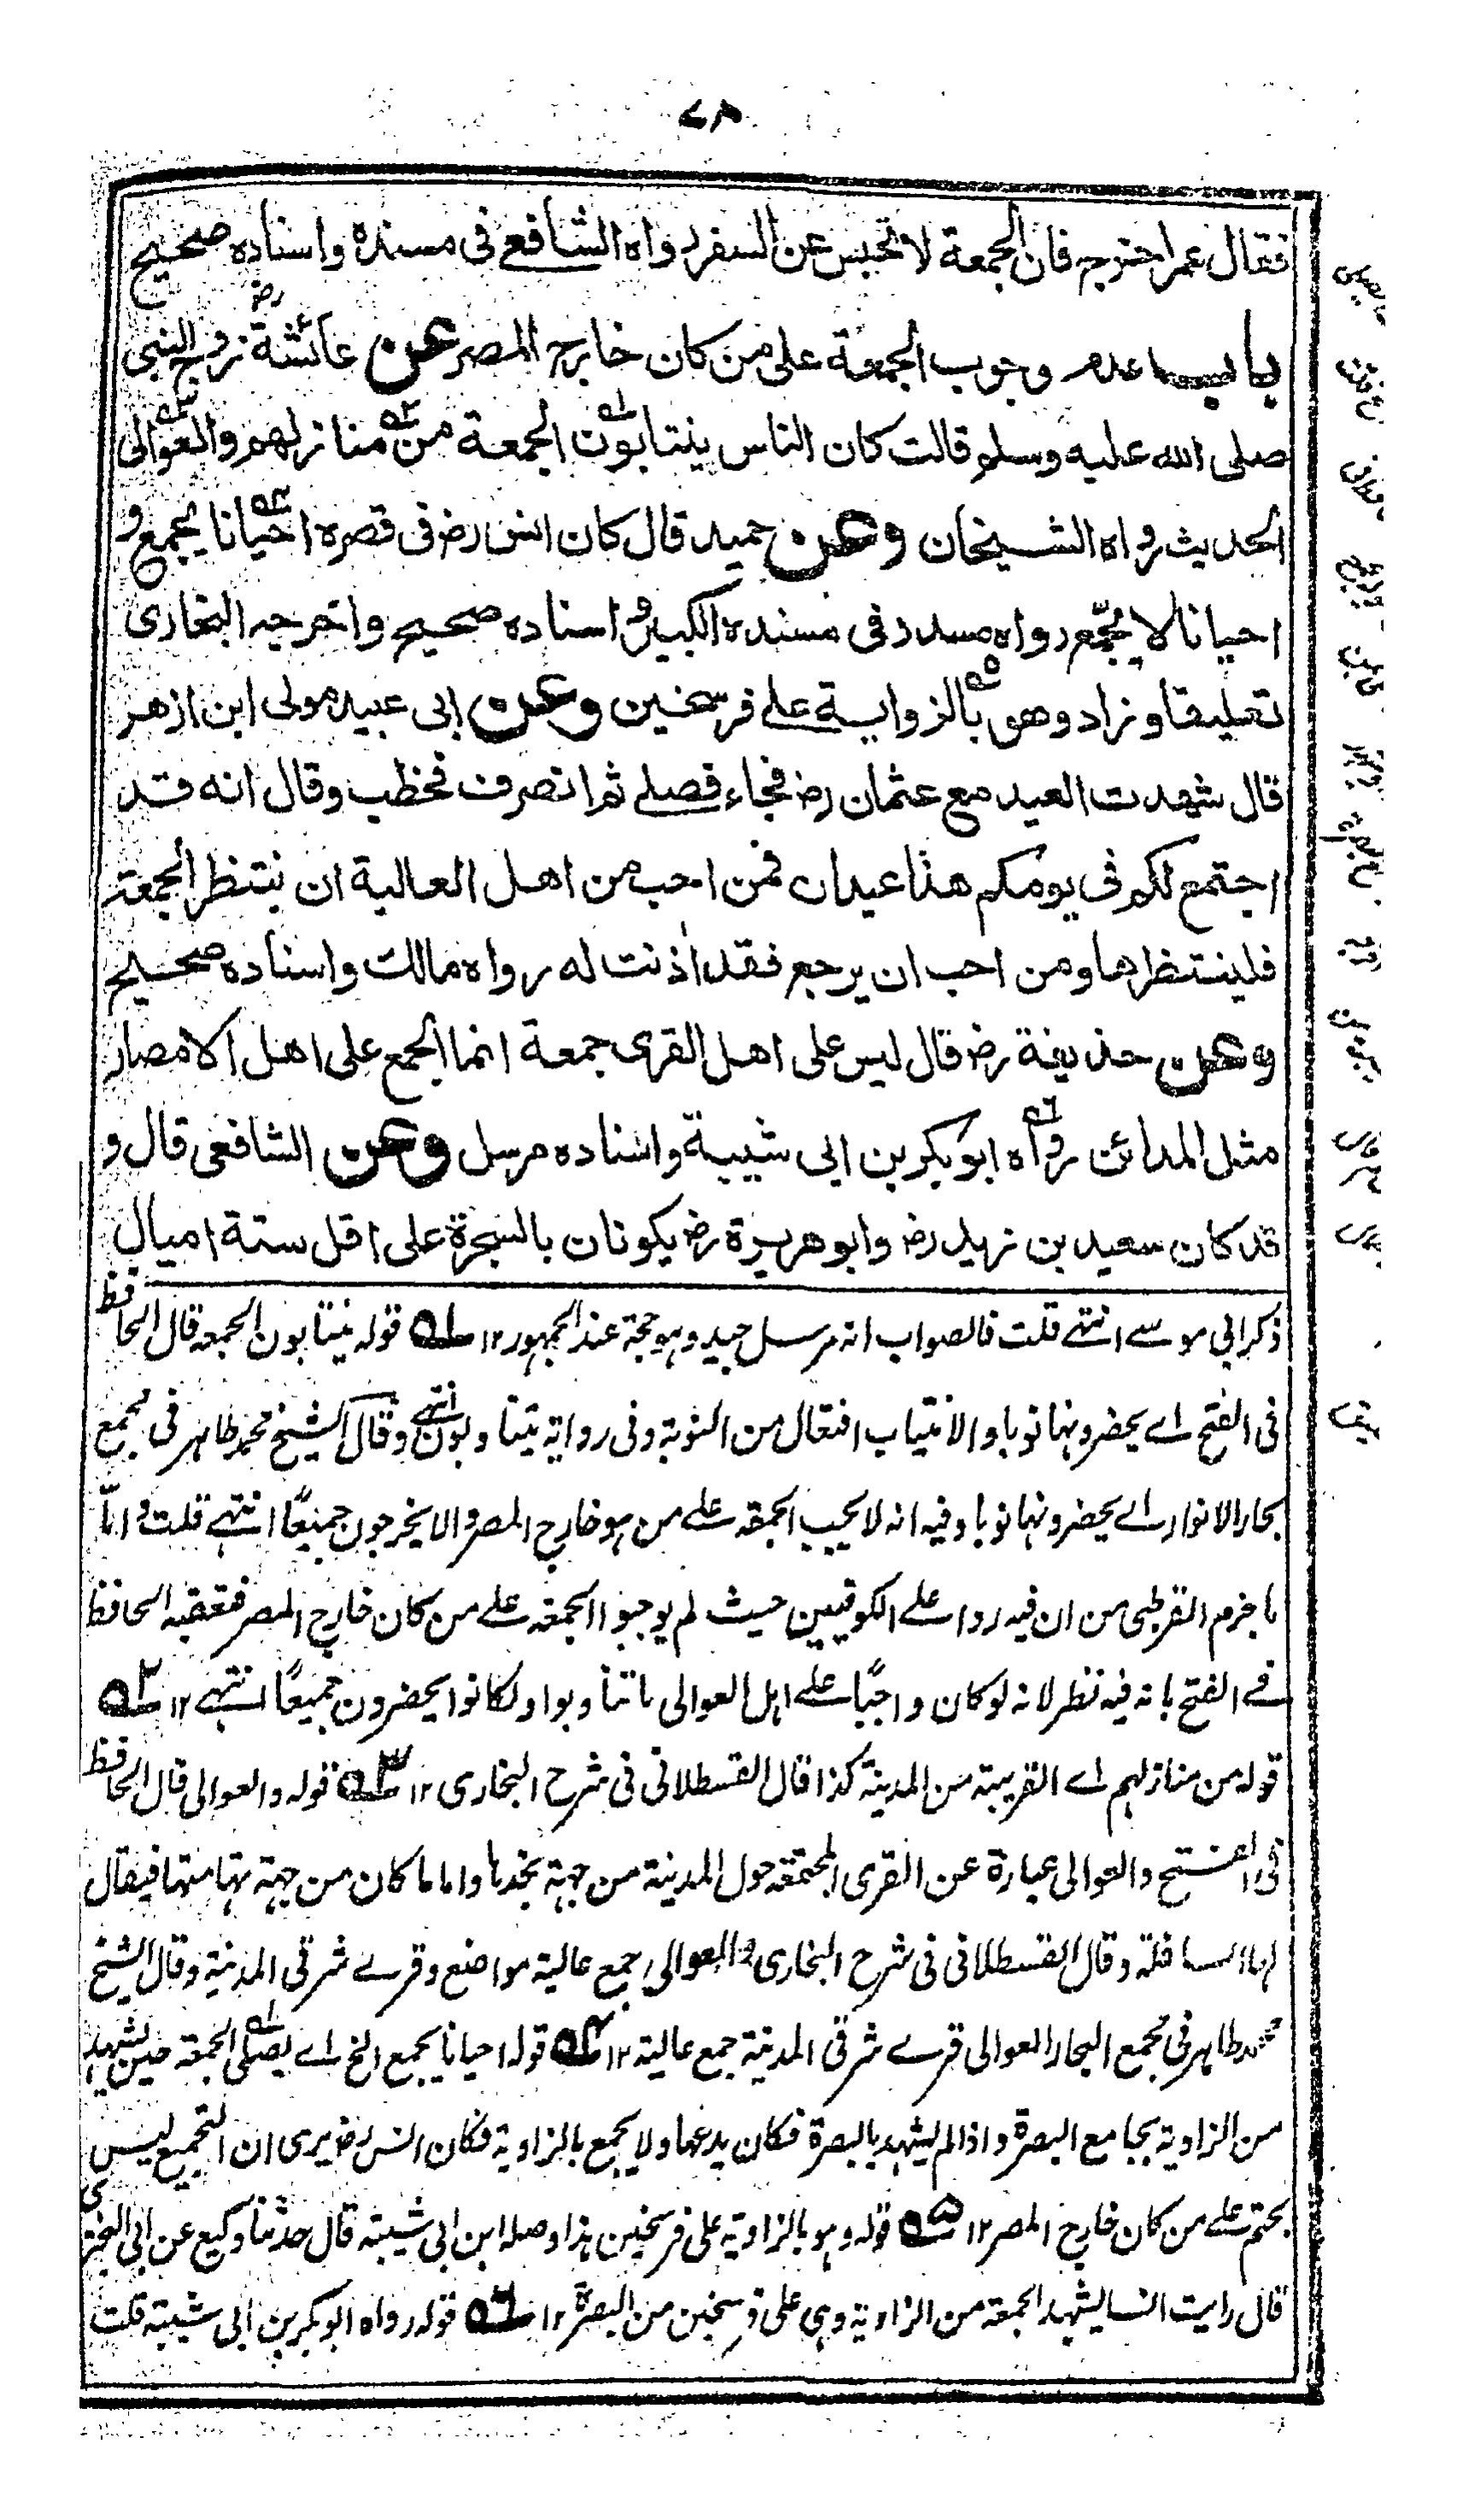 فقال عمر اخرج فان الجمعة لا تحبس عن السفر رواه الشافعي فى مسنده واسناده صحيح
باب عدم وجوب الجمعة على من كان خارج المصر عن عائشة رض زوج النبى
صلى الله عليه وسلم قالت كان الناس ينتابون الجمعة من منازلهم والعوالى
الحديث رواه الشيخان وعن حميد قال كان انس رض فى قصره احيانا يجمع و
احيانا لا يجمّع رواه مسدد فى مسنده الكبير واسناده صحيح واخرجه البخارى
تعليقا وزاد وهو بالزواية على فرسخين وعن ابى عبيد مولى ابن ازهر
قال شهدت العيد مع عثمان رض فجاء فصلى ثم انصرف فخطب وقال انه قد
اجتمع لكم فى يومكم هذا عيدان فمن احب من اهل العالية ان ينتظر الجمعة
فلينتظرها ومن احب ان يرجع فقد اذنت له رواه مالك واسناده صحيح
وعن حذيفة رض قال ليس على اهل القرى جمعة انما الجمع على اهل الامصار
مثل المدائن رواه ابو بكر بن ابى شيبة واسناده مرسل وعن الشافعى قال و
قد كان سعيد بن زيد رض وابو هريرة رض يكونان بالشجرة على اقل ستة اميال
ذكر ابى موسے انتهے قلت فالصواب انه مرسل جيد وهو حجة عند الجمهور ١٢ ١ه قوله ينتابون الجمعة قال الحافظ
فى الفتح اے يحضرونها نوبا والانتياب افتعال من النوبة وفى رواية يتناوبون انتهے وقال الشيخ محمد طاهر فى مجمع
بحار الانوار اے يحضرونها نوبا وفيه انه لا يجب الجمعة علے من هو خارج المصر والا يخرجون جميعًا انتهے قلت واما
ما جزم القرطبى من ان فيه ردا علے الكوفيين حيث لم يوجبوا الجمعة علے من كان خارج المصر فتعقبه الحافظ
فے الفتح بانه فيه نظر لانه لو كان واجبًا علے اهل العوالى ما تناوبوا ولكانوا يحضرون جميعًا انتهے ١٢ ٢ه
قوله من منازلهم اے القريبة من المدينة كذا قال القسطلانى فى شرح البخارى ١٢ ٣ه قوله والعوالى قال الحافظ
فى الفتح والعوالى عبارة عن القرى المجتمعة حول المدينة من جهة نجدها واما ما كان من جهة تهامتها فيقال
لها السافلة وقال القسطلانى فى شرح البخارى والعوالى جمع عالية مواضع وقرے شرقى المدينة وقال الشيخ
محمد طاهر فى مجمع البحار العوالى قرے شرقى المدينة جمع عالية ١٢ ٤ه قوله احيانا يجمع الخ اے يصلى الجمعة حين يشهد
من الزاوية بجامع البصرة واذا لم يشهد بالبصرة فكان يدعها ولا يجمع بالزاوية فكان انس رض يرى ان التجميع ليس
بحتم علے من كان خارج المصر ١٢ ٥ه قوله وهو بالزاوية على فرسخين هذا وصله ابن ابى شيبة قال حدثنا وكيع عن ابى البخترى
قال رايت انسا يشهد الجمعة من الزاوية وهى على فرسخين من البصرة ١٢ ٦ه قوله رواه ابو بكر بن ابى شيبة قلت